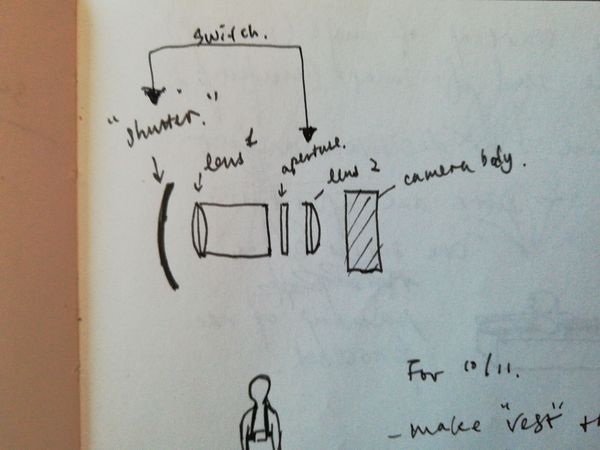 switch.
"shutter."
lens 1
aperture.
lens 2
camera body.
For 10/11.
- make "vest"